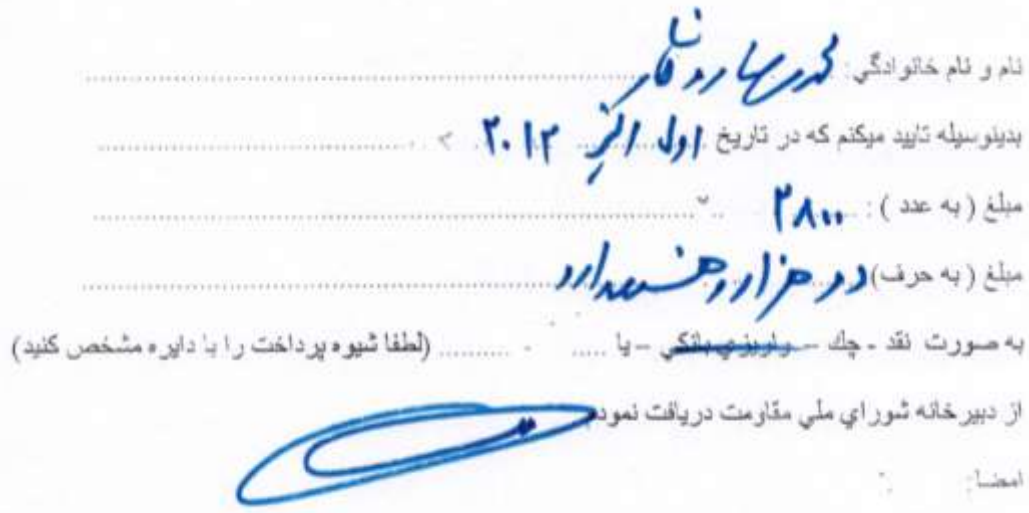 نام و نام خانوادگي: محمدرضا روحانی
بدینوسیله تایید میکنم که در تاریخ اول اکتبر ۲۰۱۲
مبلغ ( به عدد ) : ۲۸۰۰
مبلغ ( به حرف) دو هزار و هشتصد یورو
به صورت نقد - چك – واریزي بانکي – یا ..... (لطفا شیوه پرداخت را با دایره مشخص کنید)
از دبیرخانه شوراي ملي مقاومت دریافت نمودم
امضا: